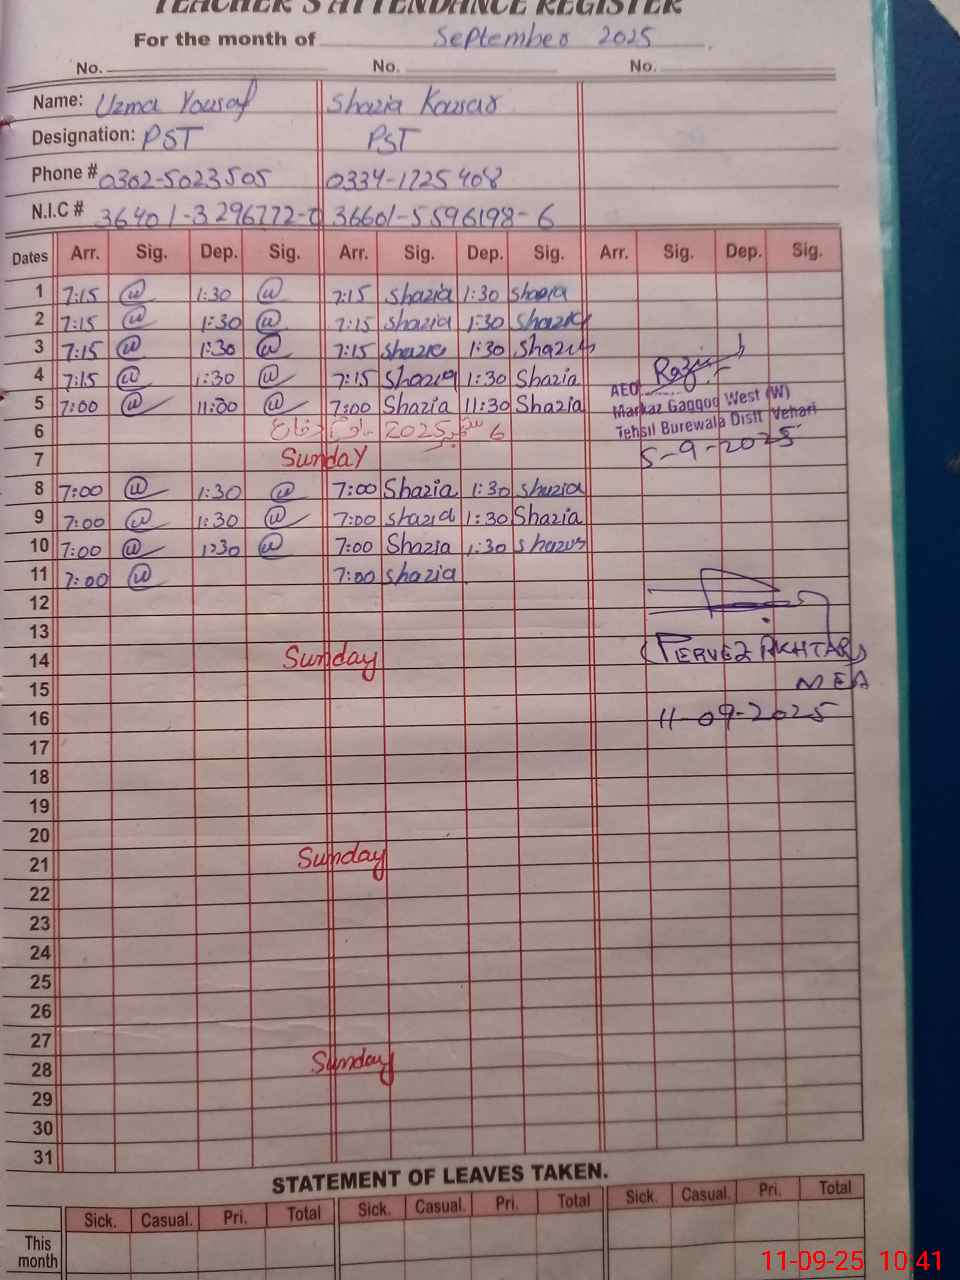 TEACHER'S ATTENDANCE REGISTER
For the month of September 2025
No. No. No.
Name: Uzma Yousaf Shazia Kousar
Designation: PST PST
Phone # 0302-5023505 0334-1725408
N.I.C # 36401-3296772- 36601-5596198-6
Dates Arr. Sig. Dep. Sig. Arr. Sig. Dep. Sig. Arr. Sig. Dep. Sig.
1 7:15 1:30 7:15 Shazia 1:30 Shazia
2 7:15 1:30 7:15 Shazia 1:30 Shazia
3 7:15 1:30 7:15 Shazia 1:30 Shazia
4 7:15 1:30 7:15 Shazia 1:30 Shazia
5 7:00 11:00 7:00 Shazia 11:30 Shazia
AEO
Markaz Gaggoo West (W)
Tehsil Burewala Distt Vehari
5-9-2025
6 6 ستمبر 2025 یوم دفاع
7 Sunday
8 7:00 1:30 7:00 Shazia 1:30 Shazia
9 7:00 1:30 7:00 Shazia 1:30 Shazia
10 7:00 1:30 7:00 Shazia 1:30 Shazia
11 7:00 7:00 Shazia
12
13
(PERVEZ AKHTAR)
14 Sunday
15
MEA
16
11-09-2025
17
18
19
20
21 Sunday
22
23
24
25
26
27
28 Sunday
29
30
31
STATEMENT OF LEAVES TAKEN.
Sick. Casual. Pri. Total Sick. Casual. Pri. Total Sick. Casual. Pri. Total
This month
11-09-25 10:41